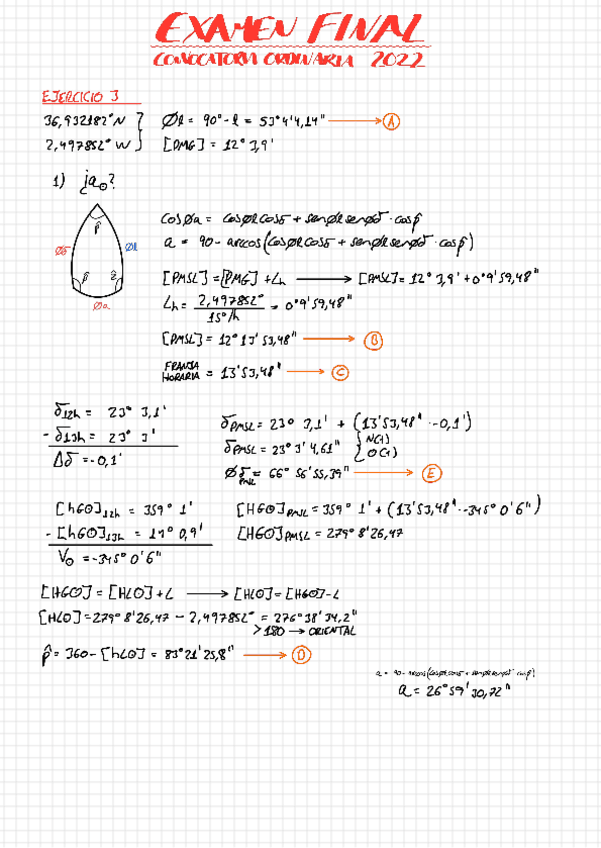 EXAMEN FINAL
CONVOCATORIA ORDINARIA 2022
EJERCICIO 3
36,932182°N
2,497852°W
Øl = 90°-l = 53°4'4,14" → A
[PMG] = 12° 3,9'
1) ¿a⊙?
p̂
Øδ
Øl
ẑ
Øa
cosØa = cosØl cosδ + senØl senØδ · cosp̂
a = 90 - arccos(cosØl cosδ + senØl senØδ · cosp̂)
[PMSL] = [PMG] + Lh → [PMSL] = 12° 3,9' + 0°9'59,48"
Lh = 2,497852° / 15°/h = 0°9'59,48"
[PMSL] = 12°13'53,48" → B
FRANJA HORARIA = 13'53,48" → C
δ12h = 23° 3,1'
- δ13h = 23° 3'
Δδ = -0,1'
δPMSL = 23° 3,1' + (13'53,48" · -0,1')
δPMSL = 23° 3' 4,61" { N(+) O(+)
ØδPMSL = 66° 56' 55,39" → E
[hG⊙]12h = 359° 1'
- [hG⊙]13h = 14° 0,9'
V⊙ = -345° 0' 6"
[HG⊙]PMSL = 359° 1' + (13'53,48" · -345° 0' 6")
[HG⊙]PMSL = 279° 8' 26,47
[HG⊙] = [HL⊙] + L → [HL⊙] = [HG⊙] - L
[HL⊙] = 279° 8' 26,47 - 2,497852° = 276° 38' 34,2"
>180 → ORIENTAL
p̂ = 360 - [hL⊙] = 83°21'25,8" → D
a = 90 - arccos(cosØl cosδ + senØl senØδ · cosp̂)
a = 26° 59' 30,72"